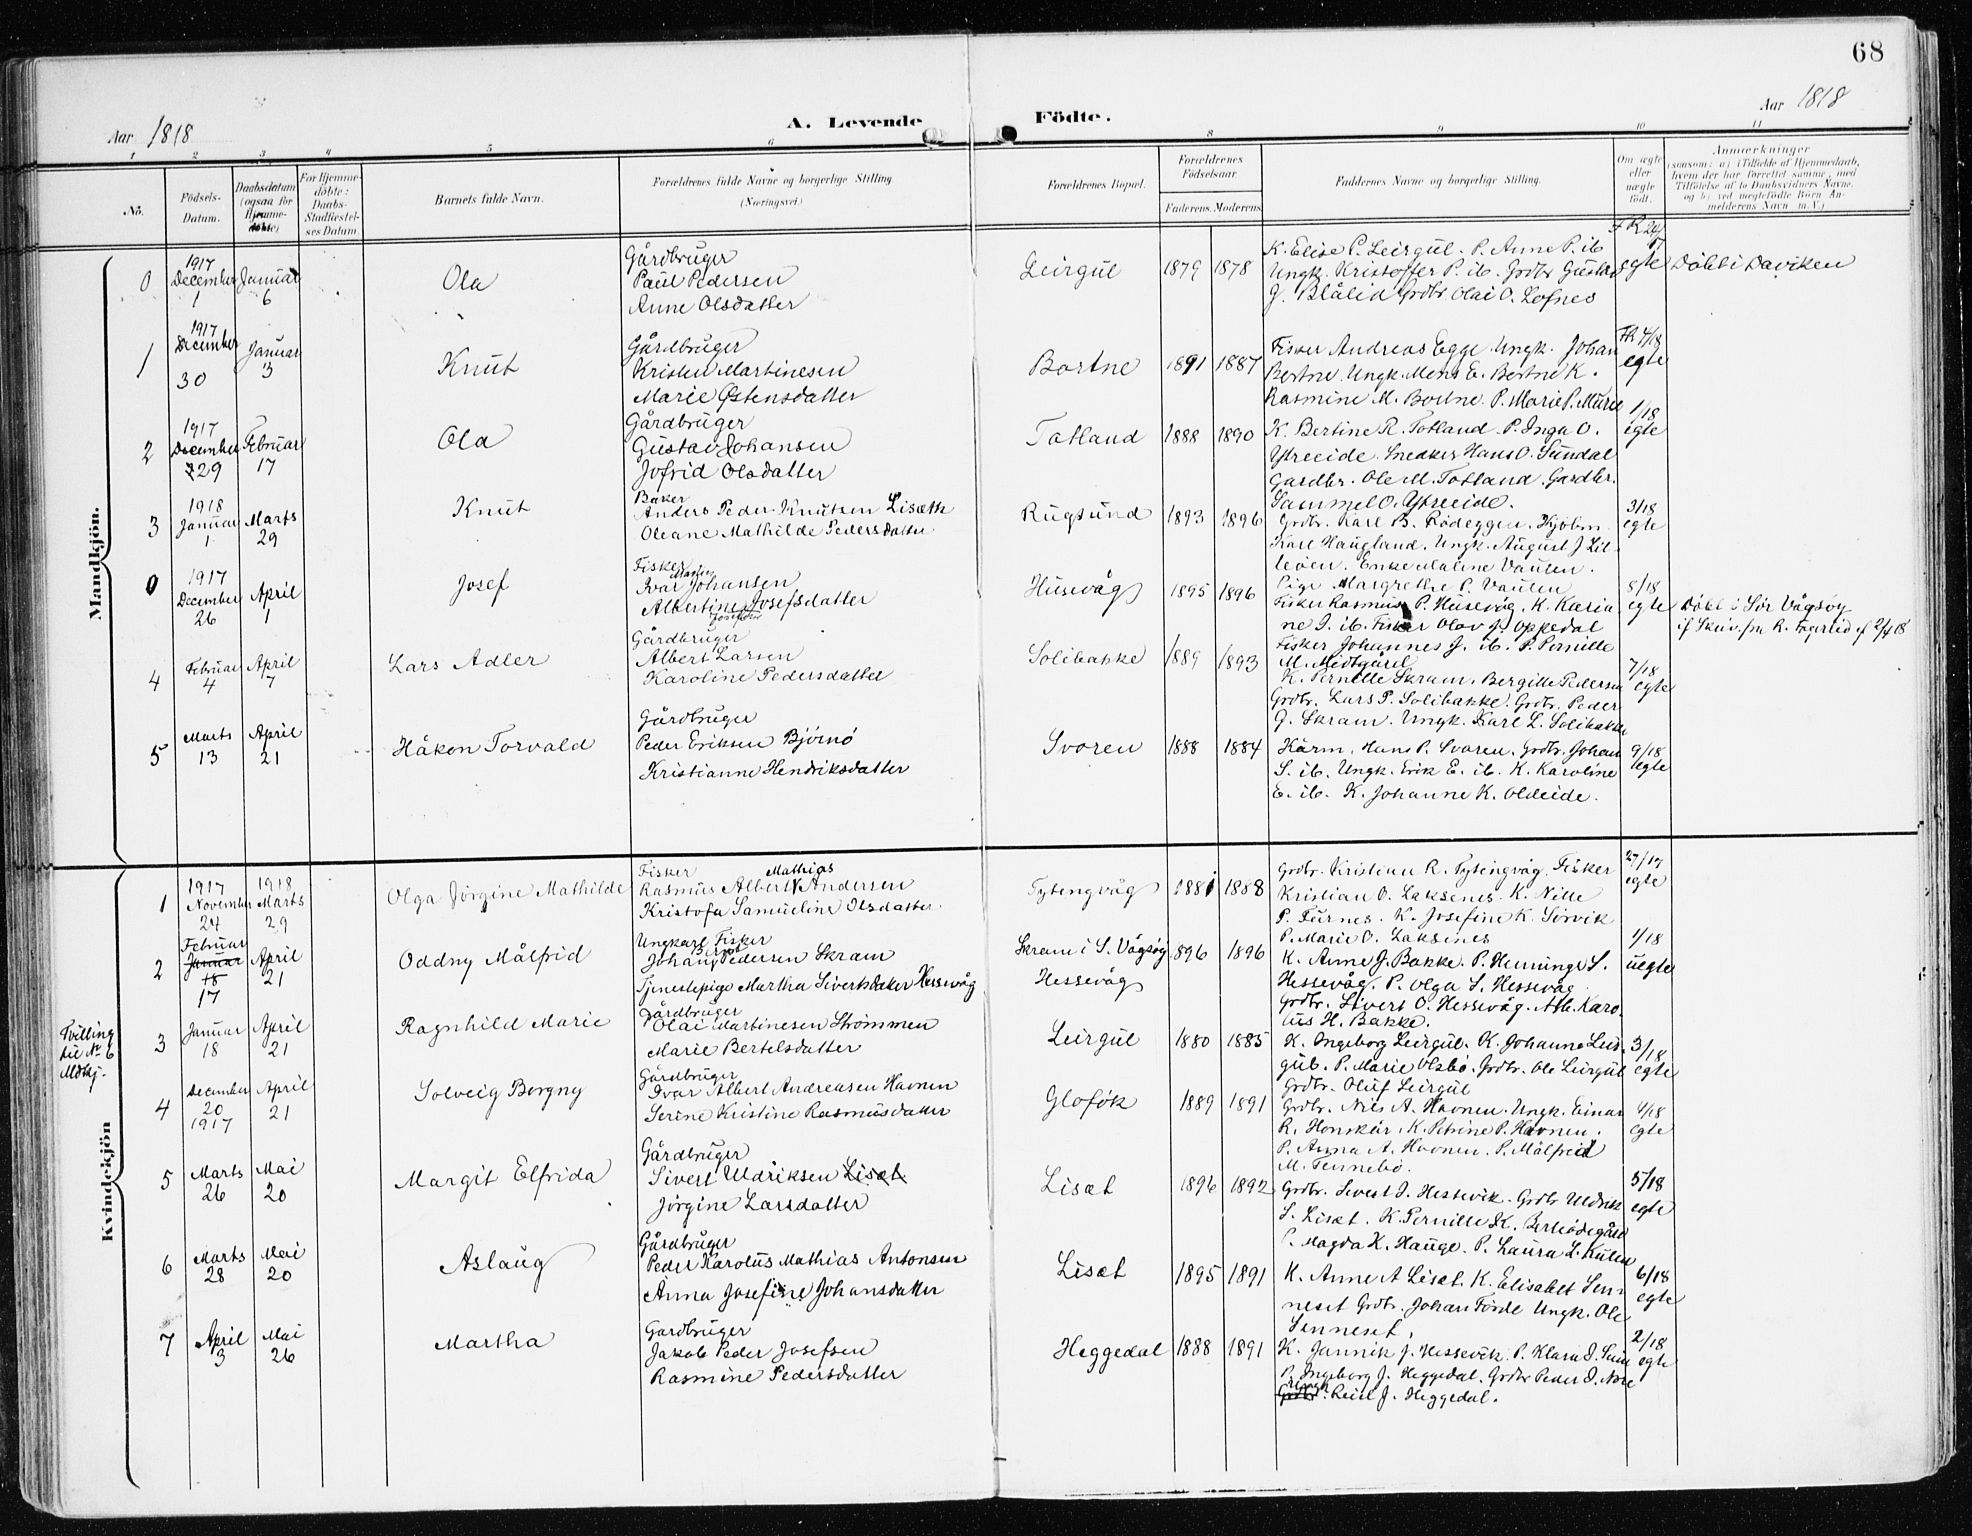 68
Aar 1818
A. Levende Födte.
Aar 1818
1 2 3 4 5 6 8 9 10 11
No.
Födsels-Datum.
Daabsdatum (ogsaa for Hjemme-döbte)
For Hjemme-döbte: Daabs-Stadfæstel-ses Datum
Barnets fulde Navn.
Forældrenes fulde Navne og borgerlige Stilling. (Næringsvei.)
Forældrenes Bopæl.
Forældrenes Födselsaar.
Faderens. Moderens.
Faddernes Navne og borgerlige Stilling.
Om ægte eller uægte födt.
Anmærkninger
(saasom: a) i Tilfælde af Hjemmedaab, hvem der har forrettet samme, med Tilföielse af to Daabsvidners Navne. og b) ved uægtefödte Börn Anmelderens Navn m. V.)
Mandkjön.
0 1917 December 1 Januar 6 Ola
Gårdbruger
Paul Pedersen
Anne Olsdatter
Leirgul 1879 1878
K. Elise P. Leirgul. P. Anne P. ib
Ungk. Kristoffer P. ib. Grdbr Gustav
J. Blålid Grdbr. Olai O. Lofnes
egte Döbt i Daviken
1 1917 December 30 Januar 3 Knut
Gårdbruger
Kristen Martinesen
Marie Østensdatter
Bortne 1891 1887
Fisker Andreas Egge. Ungk. Johan
Bortne. Ungk. Mons E. Bortne K.
Rasmine M. Bortne. P. Marie P. Mure
FR 4/18 egte
2 1917 December 29 Februar 17 Ola
Gårdbruger
Gustav Johansen
Jofrid Olsdatter
Totland 1888 1890
K. Bertine R. Totland. P. Inga O.
Ytreeide. Snedker Hans O. Sundal
Gardbr. Ole M. Totland. Gardbr.
Sammel O. Ytreeide.
1/18 egte
3 1918 Januar 1 Marts 29 Knut
Baker
Anders Peder Knutsen Lisæth
Oleane Mathilde Pedersdatter
Rugsund 1893 1896
Grdbr. Karl B. Rödeggen. Kjöbm.
Karl Haugland. Ungk. August J Lil-
leöen. Enke Maline Vaulen.
Pige Margrethe P. Vaulen
3/18 egte
0 1917 December 26 April 1 Josef
Fisker
Ivar Martin Johansen
Albertine Josefsdatter
Husevåg 1895 1896
Fisker Rasmus P. Husevåg. K. Karia
ne J. ib. Fisker Olav J. Oppedal
Fisker Johannes J. ib. P. Pernille
M. Midtgård
8/18 egte
Döbt i Sör Vågsöy
4 Februar 4 April 7 Lars Adler
Gårdbruger
Albert Larsen
Karoline Pedersdatter
Solibakke 1889 1893
K. Pernille Skram. Bergitte Pedersen
Grdbr. Lars P. Solibakke. Grdbr. Peder
G. Skram. Ungk. Karl L. Solibakke
7/18 egte
5 Marts 13 April 21 Håkon Torvald
Gårdbruger
Peder Eriksen Björnö
Kristianne Hendriksdatter
Svoren 1888 1884
Kårm. Hans P. Svoren. Grdbr. Johan
S. ib. Ungk. Erik E. ib. K. Karoline
E. ib. K. Johanne K. Oldeide.
9/18 egte
Kvindekjön
1 1917 November 24 1918 Marts 29 Olga Jörgine Mathilde
Fisker
Rasmus Albert Mathias Andersen
Kristofa Samueline Olsdatter
Tytengvåg 1881 1888
Grdbr. Kristian R. Tytingvåg. Fisker
Kristian O. Laksenes. K. Nille
P. Furnes. K. Josefine K. Sörvik
P. Marie O. Laksenes
27/17 egte
2 Februar Januar 18 17 April 21 Oddny Målfrid
Ungkarl Fisker
Johan Pedersen Skram
Tjenestepige Martha Sivertsdatter Hessevåg
Skram i S. Vågsöy 1896 1896
Hessevåg
K. Anne J. Bakke. P. Henninge S.
Hessevåg. P. Olga S. Hessevåg
Grdbr. Sivert O. Hessevåg. Arb. Karo
lus H. Bakke.
1/18 uegte
Tvilling til No 6 Mdkj.
3 Januar 18 April 21 Ragnhild Marie
Gårdbruger
Olai Martinesen Strömmen
Marie Bertelsdatter
Leirgul 1880 1885
K. Ingeborg Leirgul. K. Johanne Leir-
gul. P. Marie Olsbö. Grdbr. Ole Leirgul
Grdbr. Oluf Leirgul
3/18 egte
4 December 20 1917 April 21 Solveig Borgny
Gårdbruger
Ivar Albert Andreasen Havnen
Serine Kristine Rasmusdatter
Glofök 1889 1891
Grdbr. Nils A. Havnen. Ungk. Einar
R. Honskår. K. Petrine P. Havnen.
P. Anna A. Havnen. P. Målfrid
M. Tennebö.
4/18 egte
5 Marts 26 Mai 20 Margit Elfrida
Gårdbruger
Sivert Uldriksen Lisæt
Jörgine Larsdatter
Lisæt 1896 1892
Grdbr. Sivert J. Hessevik. Grdbr Uldrik
S. Lisæt. K. Pernille K.
P. Magda K. Hauge. P. Laura L.
5/18 egte
6 Marts 28 Mai 20 Aslaug
Gårdbruger
Peder Karolus Mathias Antonsen
Anna Josefine Johansdatter
Lisæt 1895 1891
K. Anne A Lisæt. K. Elisabet Sen-
neset Grdbr. Johan Förde Ungk. Ole
Senneset.
6/18 egte
7 April 3 Mai 26 Martha
Gardbruger
Jakob Peder Josefsen
Rasmine Pedersdatter
Heggedal 1888 1891
K. Jannik J. Hessevik. P. Klara J.
P. Ingeborg J. Heggedal. Grdbr Peder J. Nore
J. Heggedal.
2/18 egte